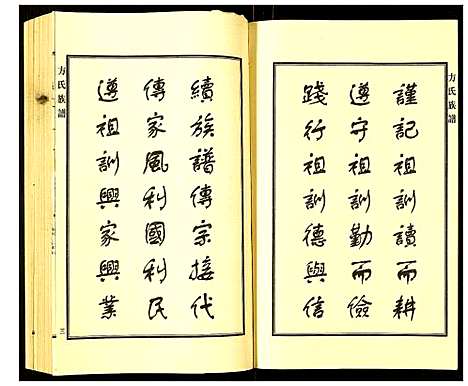 方氏族譜
謹記祖訓讀而耕
遵守祖訓勤而儉
踐行祖訓德與信
方氏族譜
續族譜傳宗接代
傳家風利國利民
遵祖訓興家興業
三